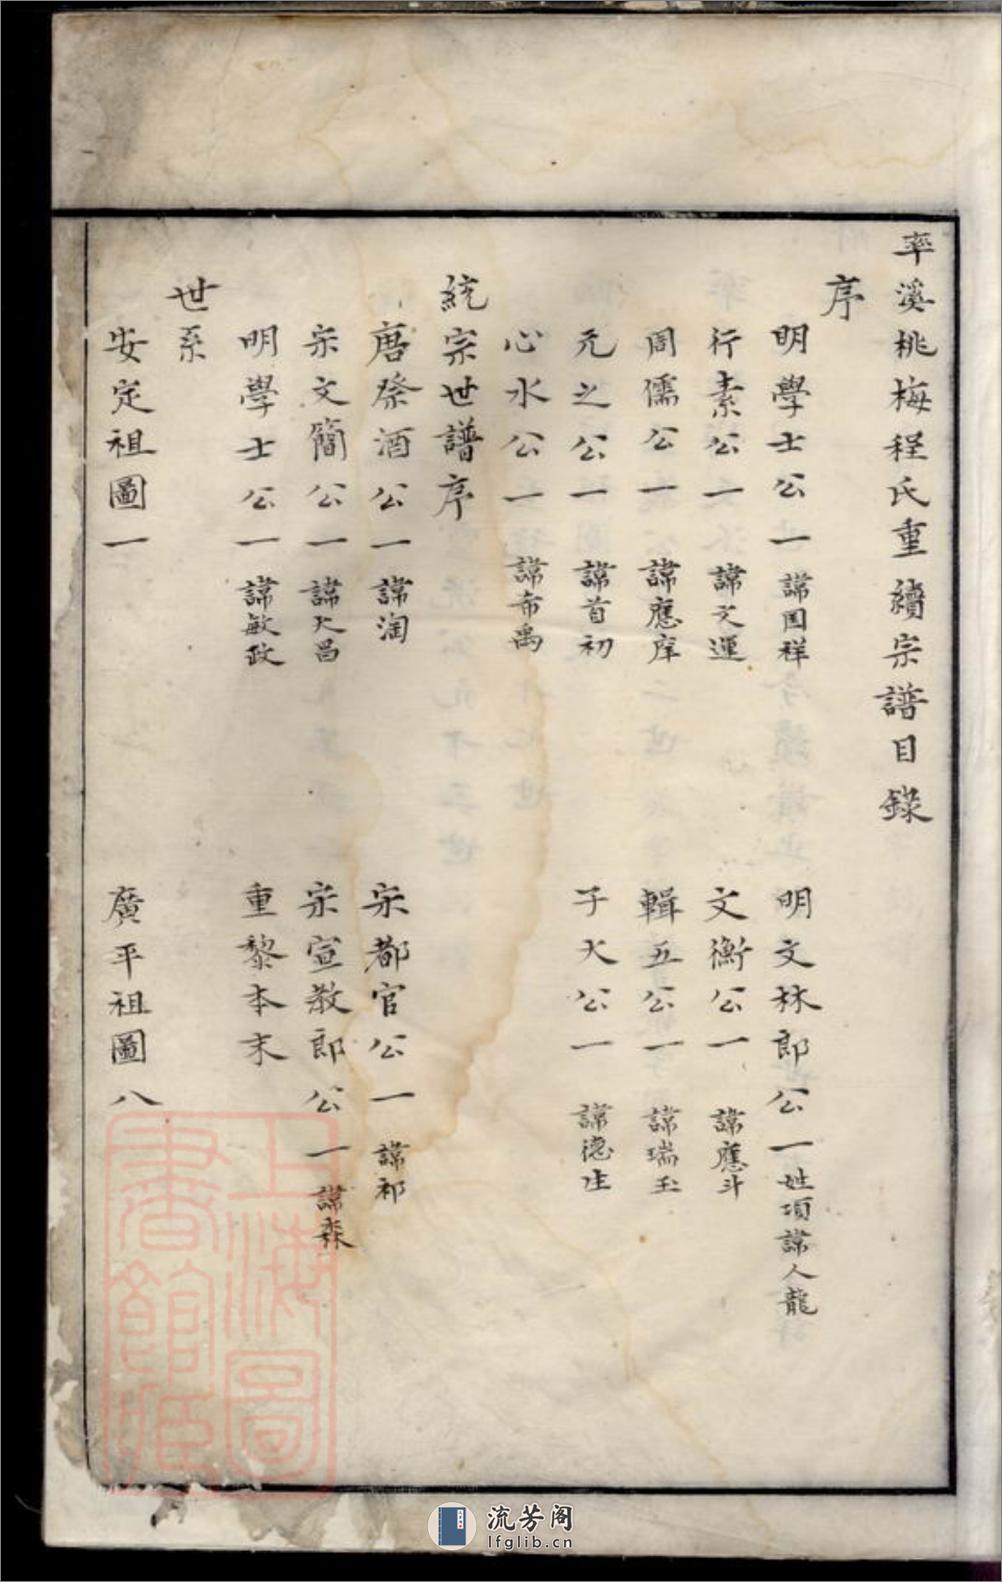 率溪桃梅程氏重續宗譜目錄
序
明學士公一 諱国祥　明文林郎公一 姓項諱人龍
行素公一 諱文運　文衡公一 諱應斗
周儒公一 諱應庠　輯五公一 諱瑞玉
元之公一 諱首初　子大公一 諱德
心水公一 諱希禹
統宗世譜序
唐祭酒公一 諱淘　宋都官公一 諱祁
宋文簡公一 諱大昌　宋宣教郎公一 諱森
明學士公一 諱敏政　重黎本末
世系
安定祖圖一　廣平祖圖八
上海圖
書館藏
流芳阁
lfglib.cn